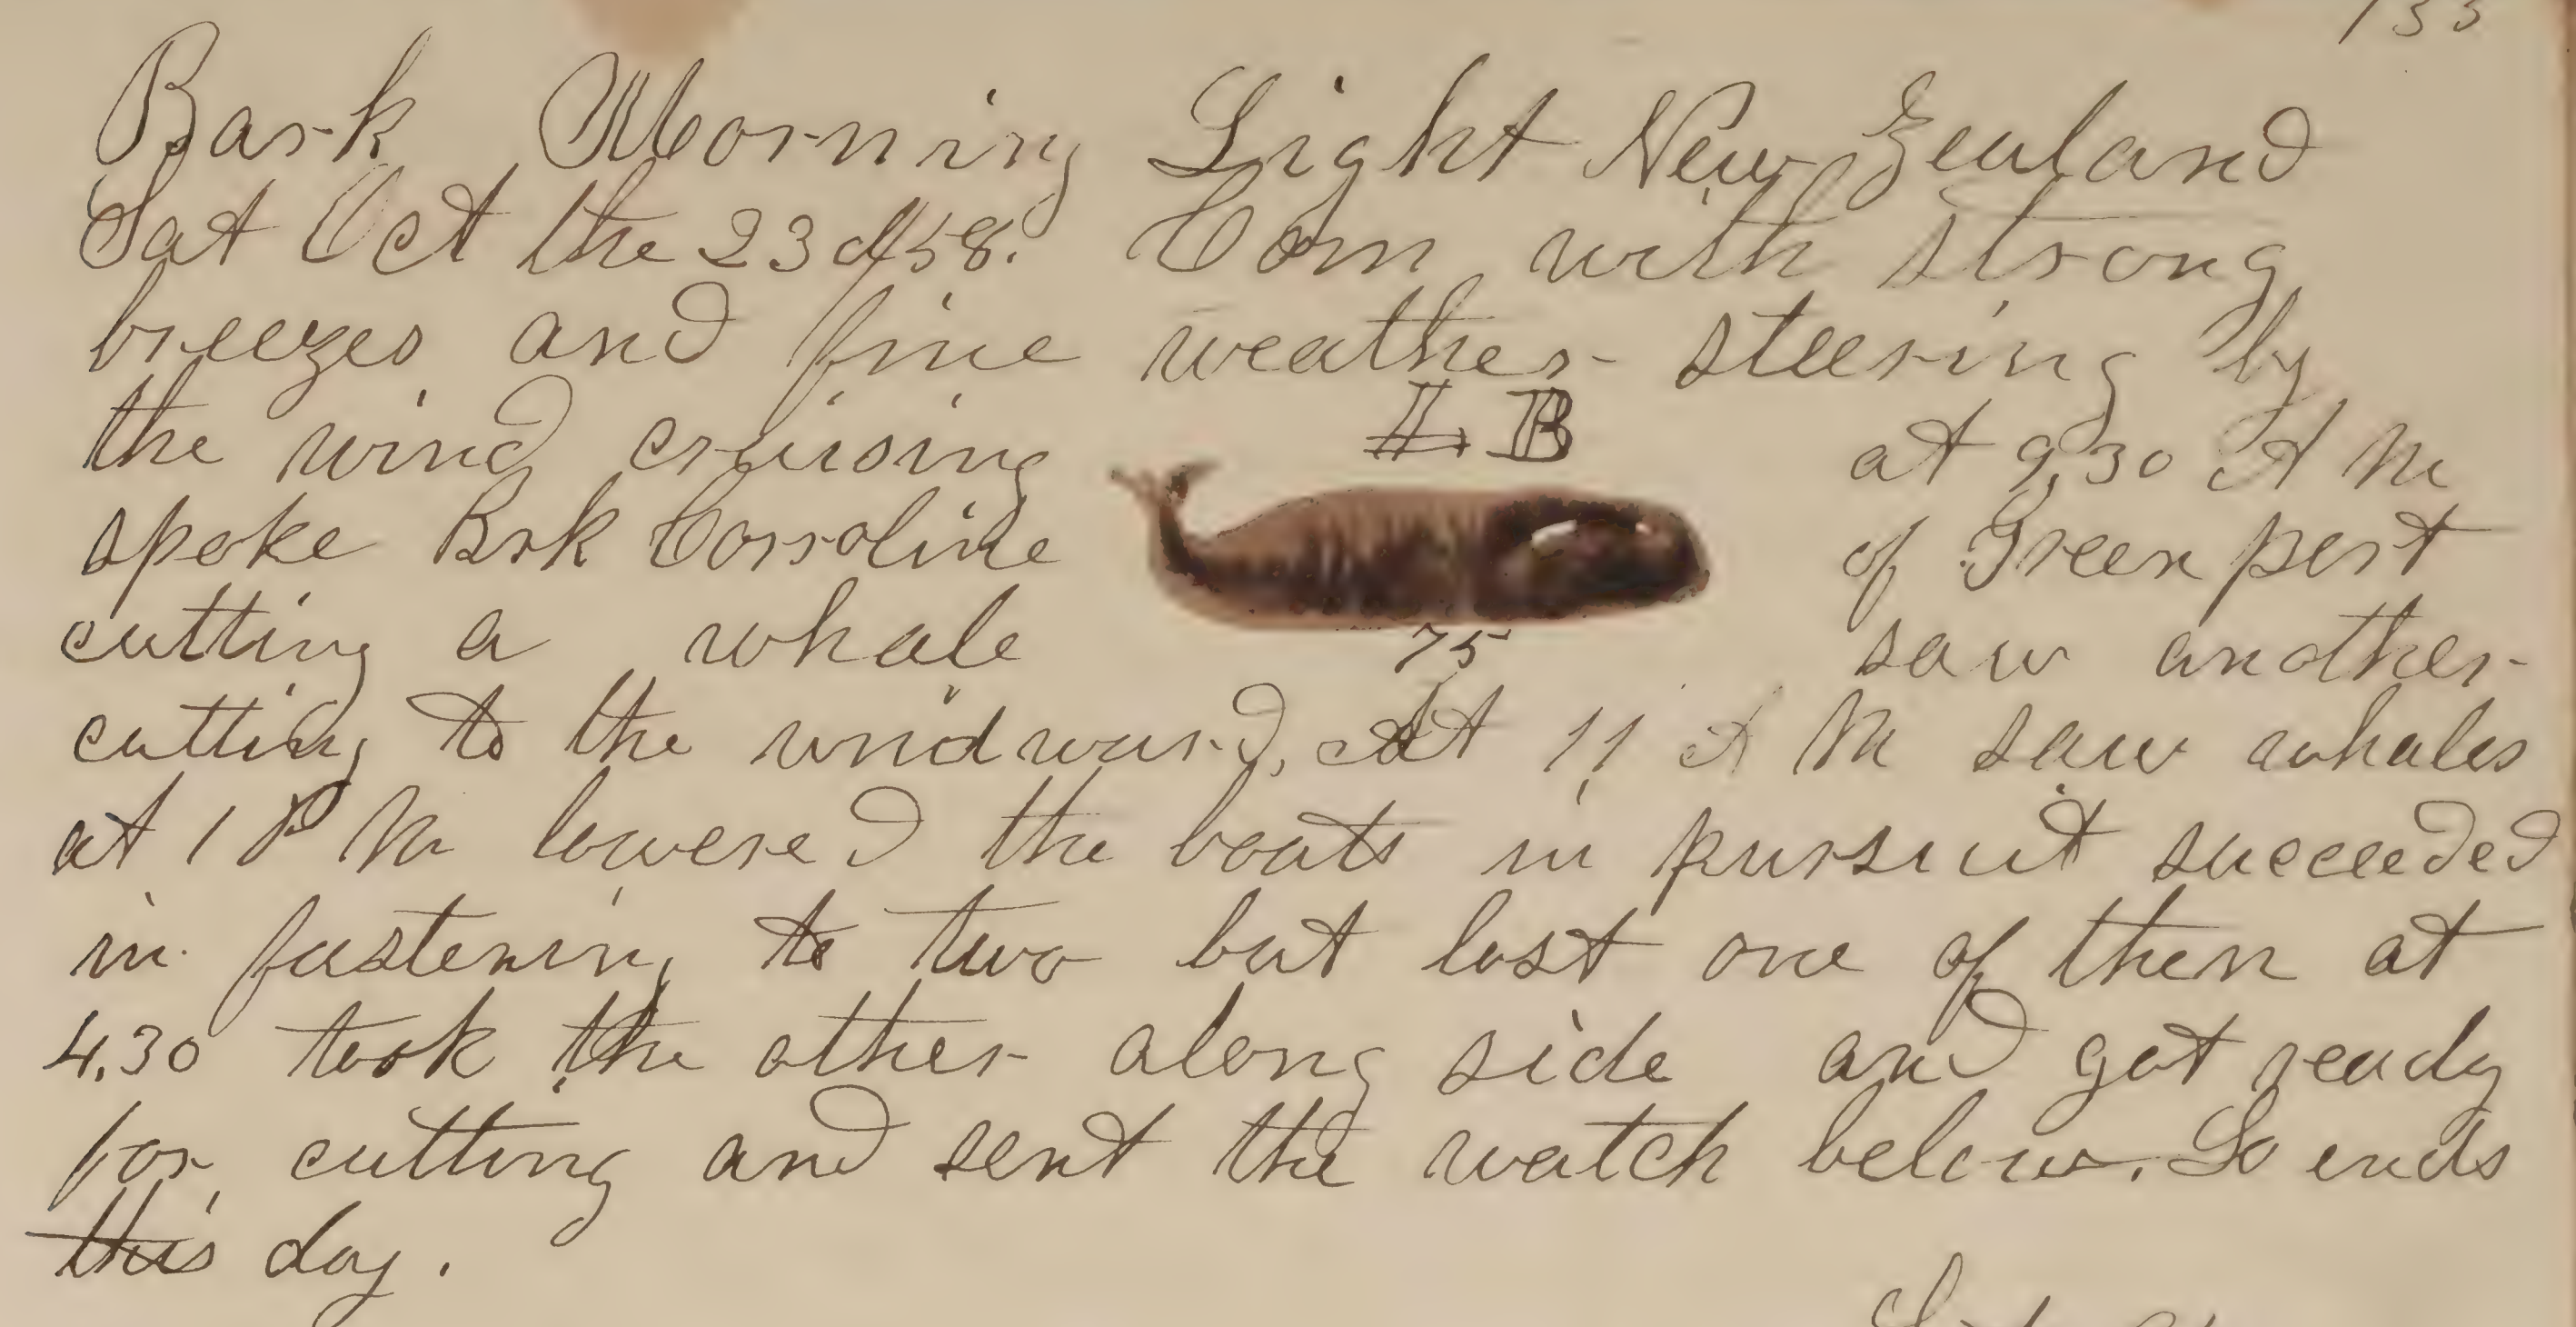 133
Bark Morning Light New Zealand
Sat Oct the 23d/58. Com with strong
breezes and fine weather steering by
the wind cruising L. B at 9,30 A M
spoke Brk Corroline of Green port
cutting a whale 75 saw another
cutting to the windward, At 11 A M saw whales
at 1 P M lowered the boats in pursuit succeeded
in fastening to two but lost one of then at
4.30 took the other along side and got ready
for cutting and sent the watch below. So ends
this day.